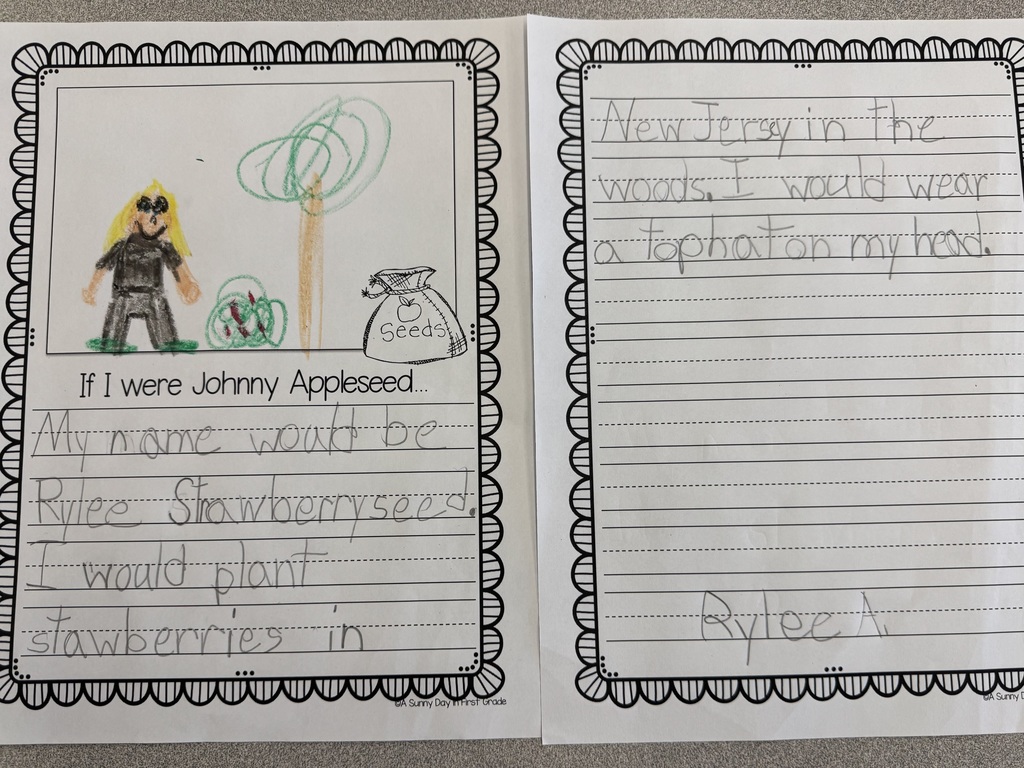 Seeds
If I were Johnny Appleseed...
My name would be
Rylee Strawberryseed.
I would plant
stawberries in
©A Sunny Day in First Grade
New Jersey in the
woods. I would wear
a tophat on my head.
Rylee A.
©A Sunny D